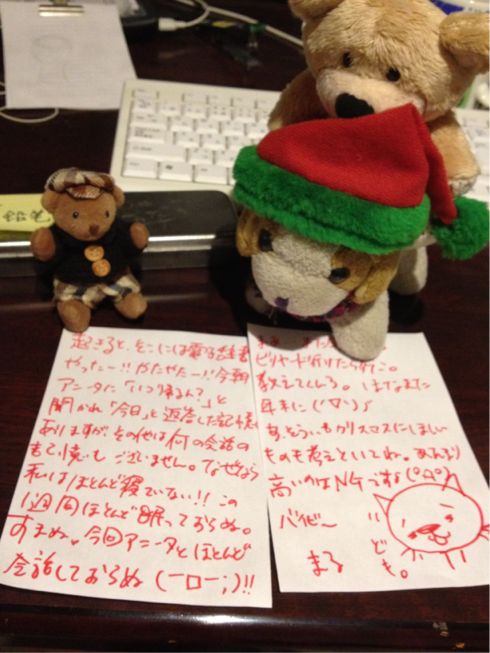 鉛筆
起きると、そこには電子辞書
やったー!!やたやたー!!今朝
アニータに「いつ帰るん?」と
聞かれ「今日」と返答した記憶は
ありますが、その他は何の会話の
も記憶もございません。なぜなら
私はほとんど寝ていない!!この
1週間ほとんど眠っておらぬ。
あまぬ。今回アニータとほとんど
会話しておらぬ(ーロー;)!!
まる
ビリヤード行けたら行こ。
教えてくんろ。はなまた
年末に(´▽`)ノ
あ、そういやクリスマスにほしい
ものも考えといてね。あんまり
高いのはNGですな(°Д°)
バイビー
まる
ども。